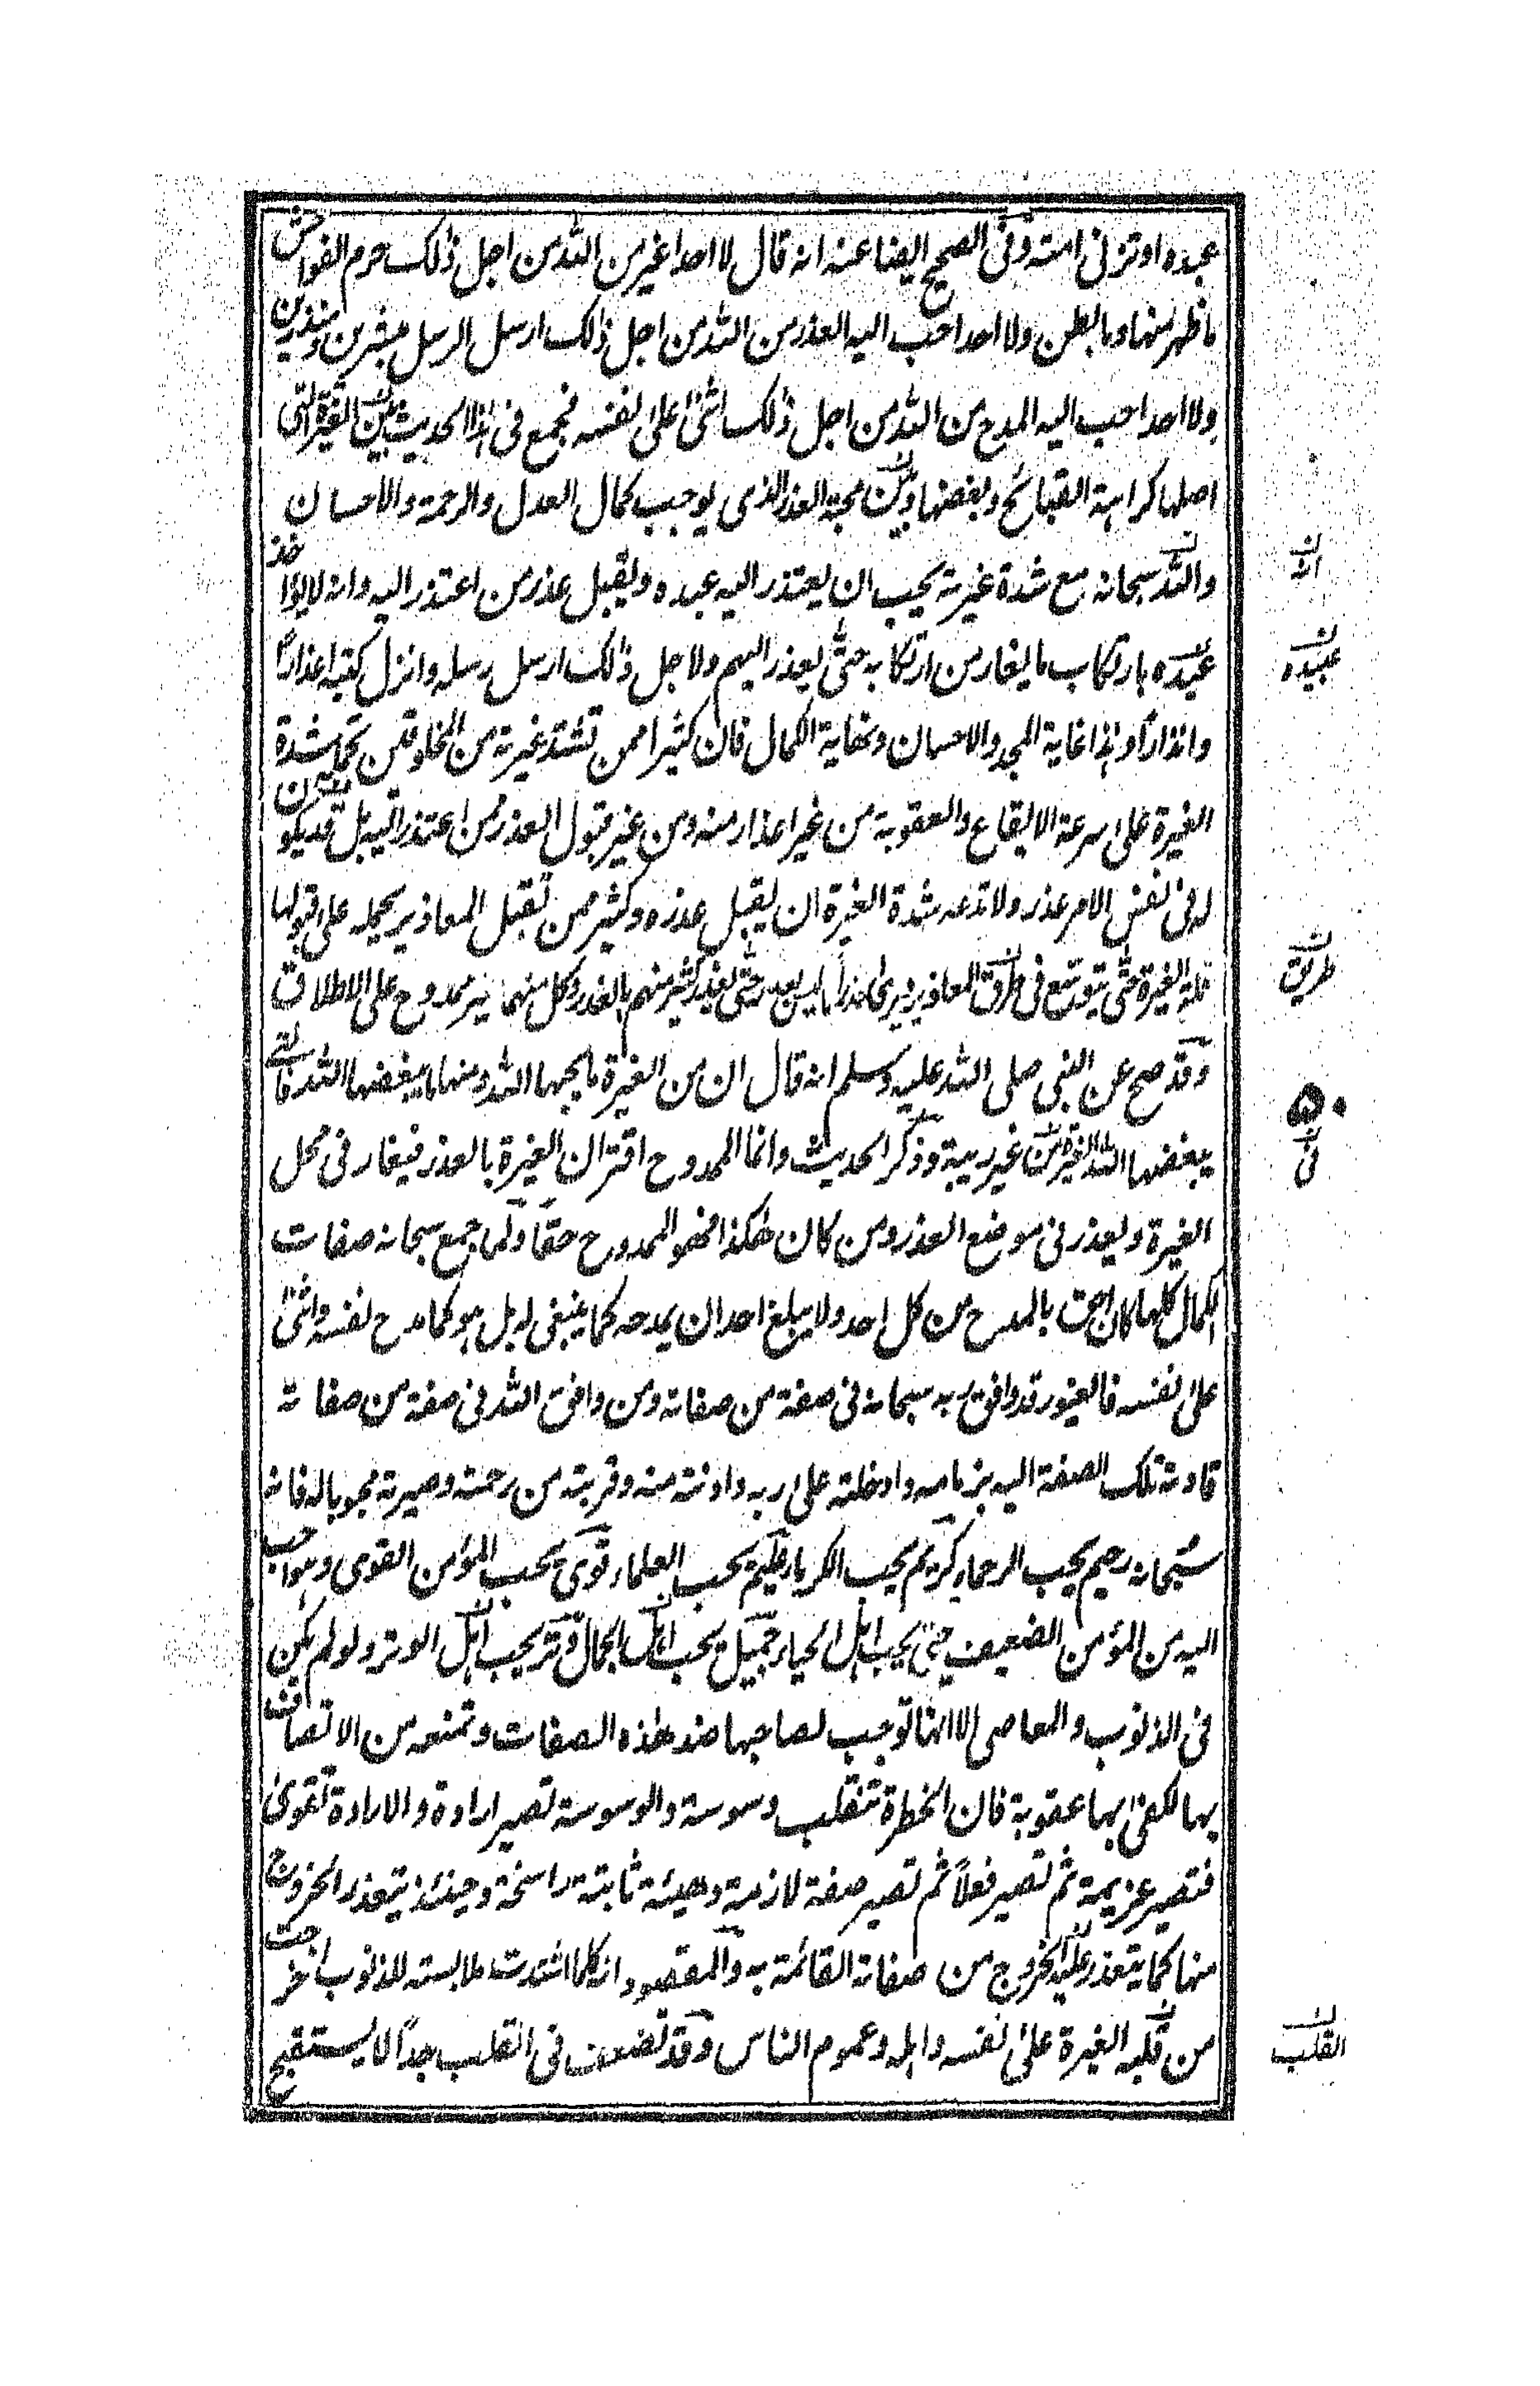 عبده او تزنى امته وفى الصحيح ايضا عنه انه قال لا احد اغير من الله من اجل ذلك حرم الفواحش
ما ظهر منها وما بطن ولا احد احب اليه العذر من الله من اجل ذلك ارسل الرسل مبشرين ومنذرين
ولا احد احب اليه المدح من الله من اجل ذلك اثنى على نفسه فجمع فى هذا الحديث بين الغيرة التى
اصلها كراهة القبائح وبغضها وبين محبة العذر الذى يوجب كمال العدل والرحمة والاحسان
والله سبحانه مع شدة غيرته يحب ان يعتذر اليه عبده ويقبل عذر من اعتذر اليه وانه لا يؤاخذ
انه
عبده بارتكاب ما يغار من ارتكابه حتى يعذر اليهم ولاجل ذلك ارسل رسله وانزل كتبه اعذارًا
عبيده
وانذارًا وهذا غاية المجد والاحسان ونهاية الكمال فان كثيرا ممن تشتد غيرته من المخلوقين تحمله شدة
الغيرة على سرعة الايقاع والعقوبة من غير اعذار منه ومن غير قبول العذر من اعتذر اليه بل قد يكون
له فى نفس الامر عذر ولا تدعه شدة الغيرة ان يقبل عذره وكثير ممن تقبل المعاذير يحمله على قبولها
قلة الغيرة حتى يتوسع فى طرق المعاذير ويرى عذرا ما ليس بعذر حتى يعذر كثير منهم بالقدر وكل منهما غير ممدوح على الاطلاق
طريق
وقد صح عن النبى صلى الله عليه وسلم انه قال ان من الغيرة ما يحبها الله ومنها ما يبغضها الله فالتى
۵۰
يبغضها الله الغيرة من غير ريبة وذكر الحديث وانما الممدوح اقتران الغيرة بالعذر فيغار فى محل
فى
الغيرة ويعذر فى موضع العذر ومن كان هكذا فهو الممدوح حقًا ولما جمع سبحانه صفات
الكمال كلها كان احق بالمدح من كل احد ولا يبلغ احد ان يمدحه كما ينبغى له بل هو كما مدح نفسه واثنى
على نفسه فالغيور قد وافق ربه سبحانه فى صفة من صفاته ومن وافق الله فى صفة من صفاته
قادته تلك الصفة اليه بزمامه وادخلته على ربه وادنته منه وقربته من رحمته وصيرته محبوبا له فانه
سبحانه رحيم يحب الرحماء كريم يحب الكرماء عليم يحب العلماء قوى يحب المؤمن القوى وهو احب
اليه من المؤمن الضعيف حيى يحب اهل الحياء جميل يحب اهل الجمال وتر يحب اهل الوتر ولو لم يكن
فى الذنوب والمعاصى الا انها توجب لصاحبها ضد هذه الصفات وتمنعه من الاتصاف
بها لكفى بها عقوبة فان الخطرة تنقلب وسوسة والوسوسة تصير ارادة والارادة تقوى
فتصير عزيمة ثم تصير فعلاً ثم تصير صفة لازمة وهيئة ثابتة راسخة وحينئذ يتعذر الخروج
منها كما يتعذر عليه الخروج من صفاته القائمة به والمقصود انه كلما اشتدت ملابسته للذنوب اخرجت
من قلبه الغيرة على نفسه واهله وعموم الناس وقد تضعف فى القلب جدًا لا يستقبح
القلب